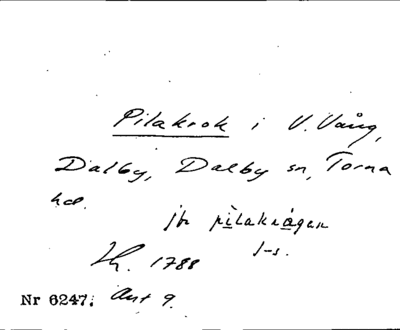 Pilakrok i V. Vång,
Dalby, Dalby sn, Torna
hd.
jfr pìlakrågen
l-s.
Lh. 1788
Nr 6247; Ant 9.